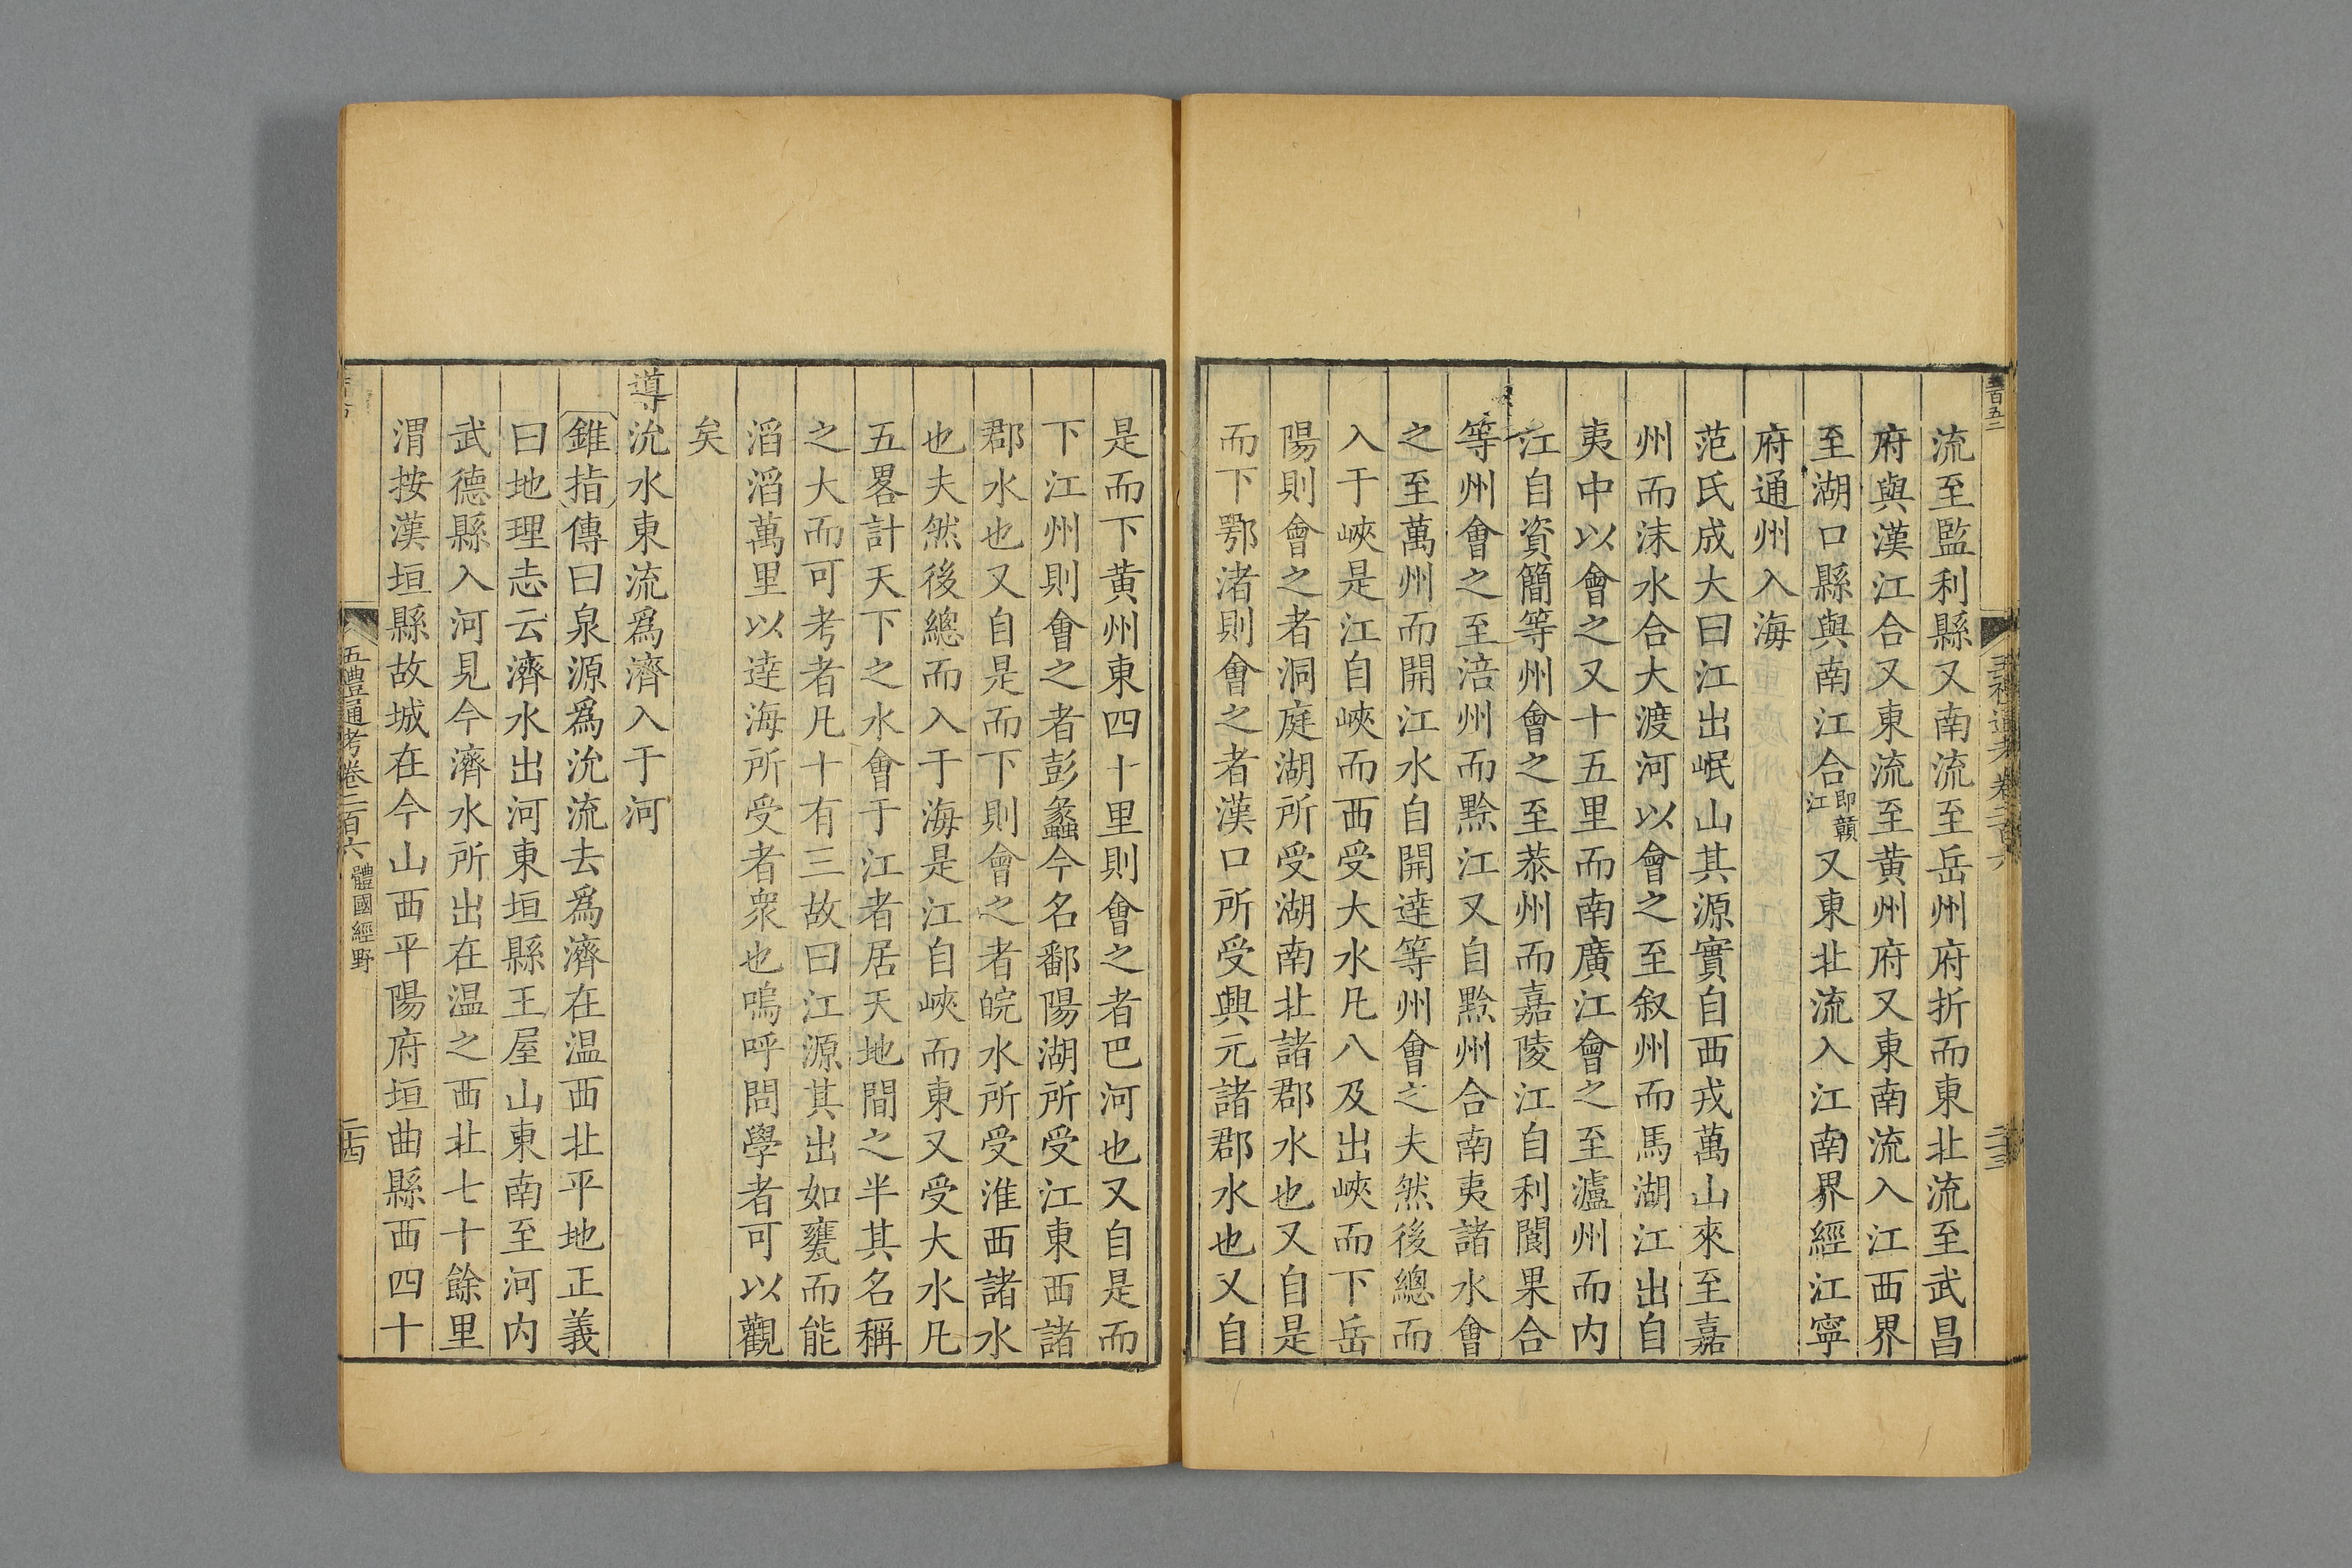 流至監利縣又南流至岳州府折而東北流至武昌
府與漢江合又東流至黄州府又東南流入江西界
至湖口縣與南江合即贛江又東北流入江南界經江寧
府通州入海
范氏成大曰江出岷山其源實自西戎萬山來至嘉
州而沬水合大渡河以會之至叙州而馬湖江出自
夷中以會之又十五里而南廣江會之至瀘州而内
江自資簡等州會之至恭州而嘉陵江自利閬果合
等州會之至涪州而黔江又自黔州合南夷諸水會
之至萬州而開江水自開達等州會之夫然後總而
入于峽是江自峽而西受大水凡八及出峽而下岳
陽則會之者洞庭湖所受湖南北諸郡水也又自是
而下鄂渚則會之者漢口所受興元諸郡水也又自
是而下黄州東四十里則會之者巴河也又自是而
下江州則會之者彭蠡今名鄱陽湖所受江東西諸
郡水也又自是而下則會之者皖水所受淮西諸水
也夫然後總而入于海是江自峽而東又受大水凡
五畧計天下之水會于江者居天地間之半其名稱
之大而可考者凡十有三故曰江源其出如甕而能
滔滔萬里以逹海所受者衆也嗚呼問學者可以觀
矣
導沇水東流爲濟入于河
錐指傳曰泉源爲沇流去爲濟在温西北平地正義
曰地理志云濟水出河東垣縣王屋山東南至河内
武德縣入河見今濟水所出在温之西北七十餘里
渭按漢垣縣故城在今山西平陽府垣曲縣西四十
五禮通考卷二百六 體國經野 二十四